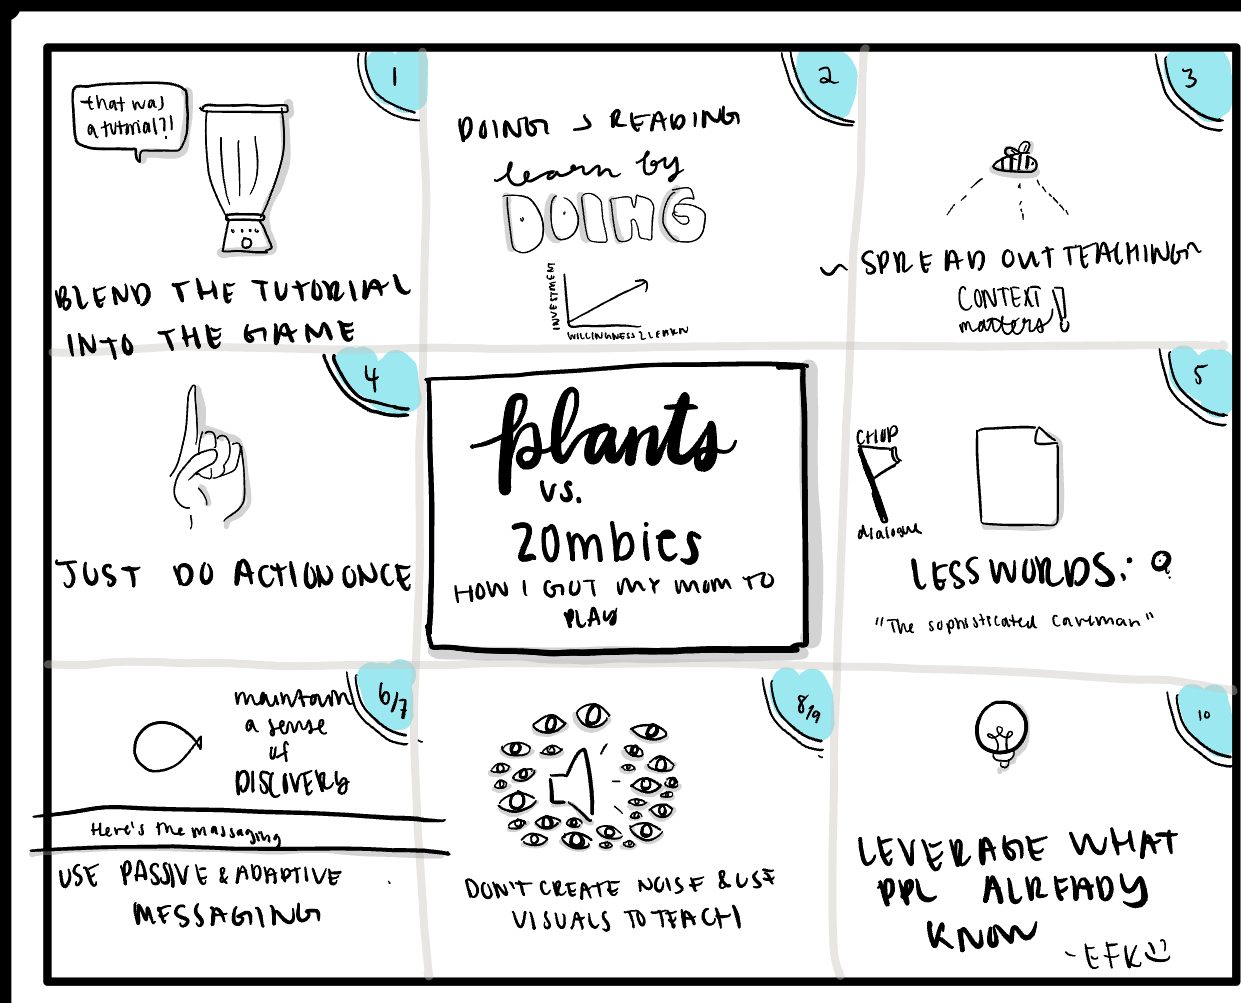 1
that was
a tutorial?!
BLEND THE TUTORIAL
INTO THE GAME
2
DOING > READING
learn by
DOING
INVESTMENT
WILLINGNESS 2 LEARN
3
~ SPREAD OUT TEACHING~
CONTEXT
matters!
4
JUST DO ACTION ONCE
plants
vs.
zombies
HOW I GOT MY MOM TO
PLAY
5
CHOP
dialogue
LESS WORDS:
"The sophisticated caveman"
6/7
maintain
a sense
of
DISCOVERY
Here's the massaging
USE PASSIVE & ADAPTIVE
MESSAGING
8/9
DON'T CREATE NOISE & USE
VISUALS TO TEACH!
10
LEVERAGE WHAT
PPL ALREADY
KNOW
-EFK